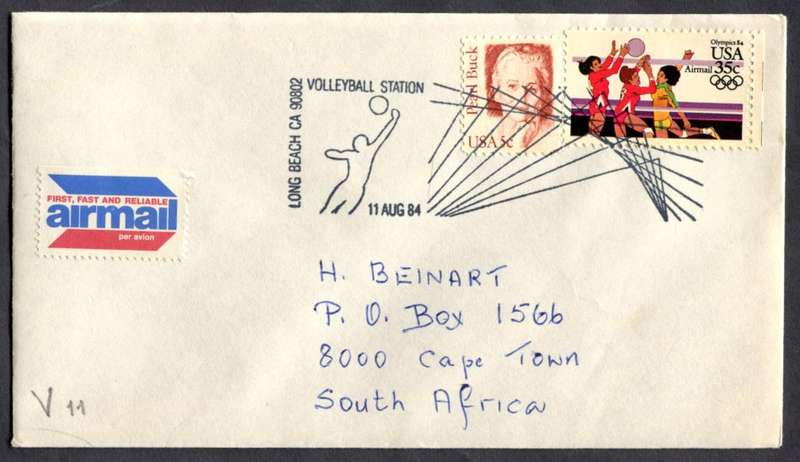 VOLLEYBALL STATION
LONG BEACH CA 90802
11 AUG 84
Pearl Buck
USA 5c
Olympics 84
USA
Airmail 35c
FIRST, FAST AND RELIABLE
airmail
par avion
H. BEINART
P. O. Box 1566
8000 Cape Town
South Africa
V 11